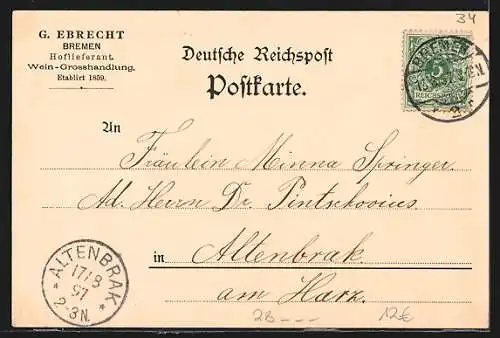 34
G. EBRECHT
BREMEN
Hoflieferant.
Wein-Grosshandlung.
Etablirt 1859.
Deutsche Reichspost
Postkarte.
BREMEN
5
REICHSPOST
An
Fräulein Minna Springer.
Ad. Herrn Dr. Pintschovius.
in Altenbrak
am Harz.
ALTENBRAK
17/8
97
2-3N.
12€